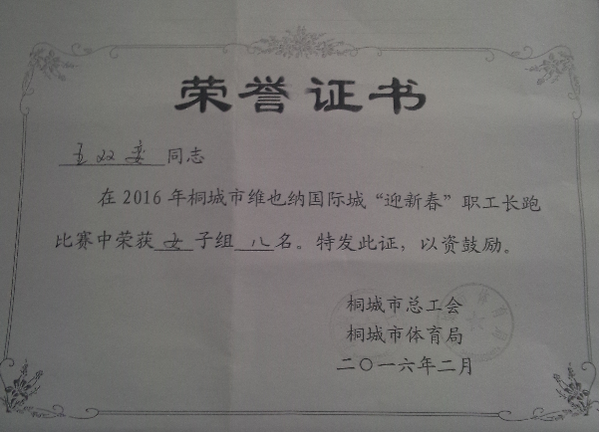 荣誉证书
王双 同志
在2016年桐城市维也纳国际城“迎新春”职工长跑
比赛中荣获 女 子组 八 名。特发此证，以资鼓励。
桐城市总工会
桐城市体育局
二〇一六年二月